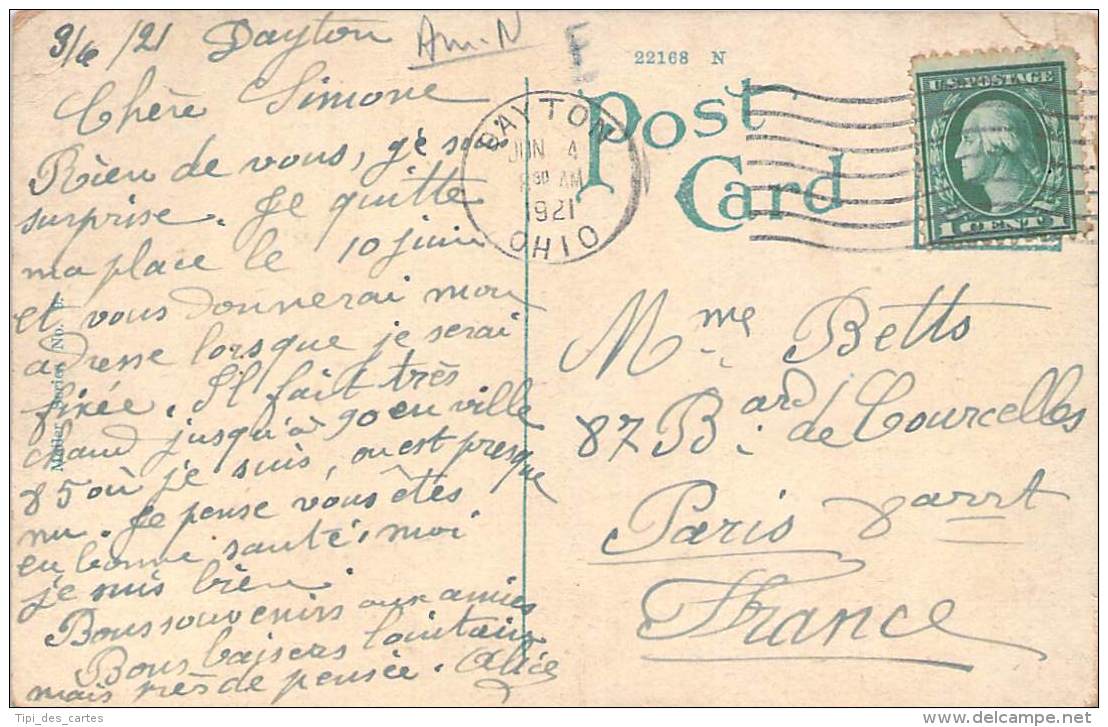 3/6/21 Dayton
Am. N
Chère Simone
Rien de vous, je suis
surprise. Je quitte
ma place le 10 juin
et vous donnerai mon
adresse lorsque je serai
fixée. Il fait très
chaud jusqu'à 90 en ville
85 où je suis, on est presque
nu. Je pense vous êtes
en bonne santé, moi
je suis bien.
Bons souvenirs aux amies
Bons baisers lointains
mais près de pensée. Alice
22168 N
Post
Card
DAYTON
JUN 4
30 AM
1921
OHIO
U.S. POSTAGE
1 CENT 1
Mme Betts
87 Bard de Courcelles
Paris 8 arrt
France
Series No.
Tipi_des_cartes
www.delcampe.net